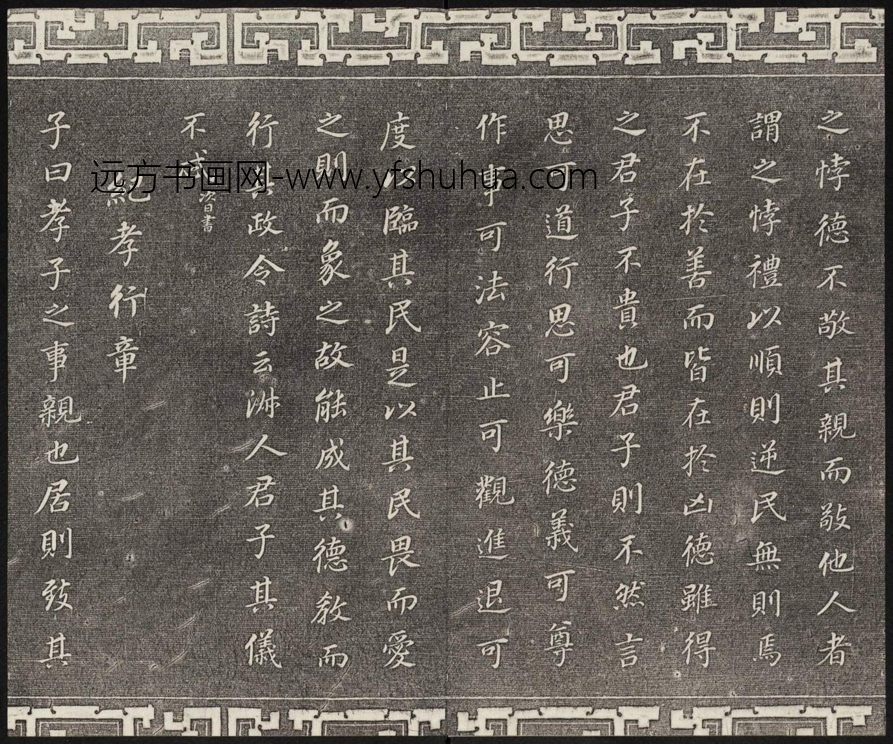 之悖德不敬其親而敬他人者
謂之悖禮以順則逆民無則焉
不在於善而皆在於凶德雖得
之君子不貴也君子則不然言
思可道行思可樂德義可尊
作事可法容止可觀進退可
度以臨其民是以其民畏而愛
之則而象之故能成其德教而
行其政令詩云淑人君子其儀
不忒
日書
紀孝行章
子曰孝子之事親也居則致其
远方书画网-www.yfshuhua.com